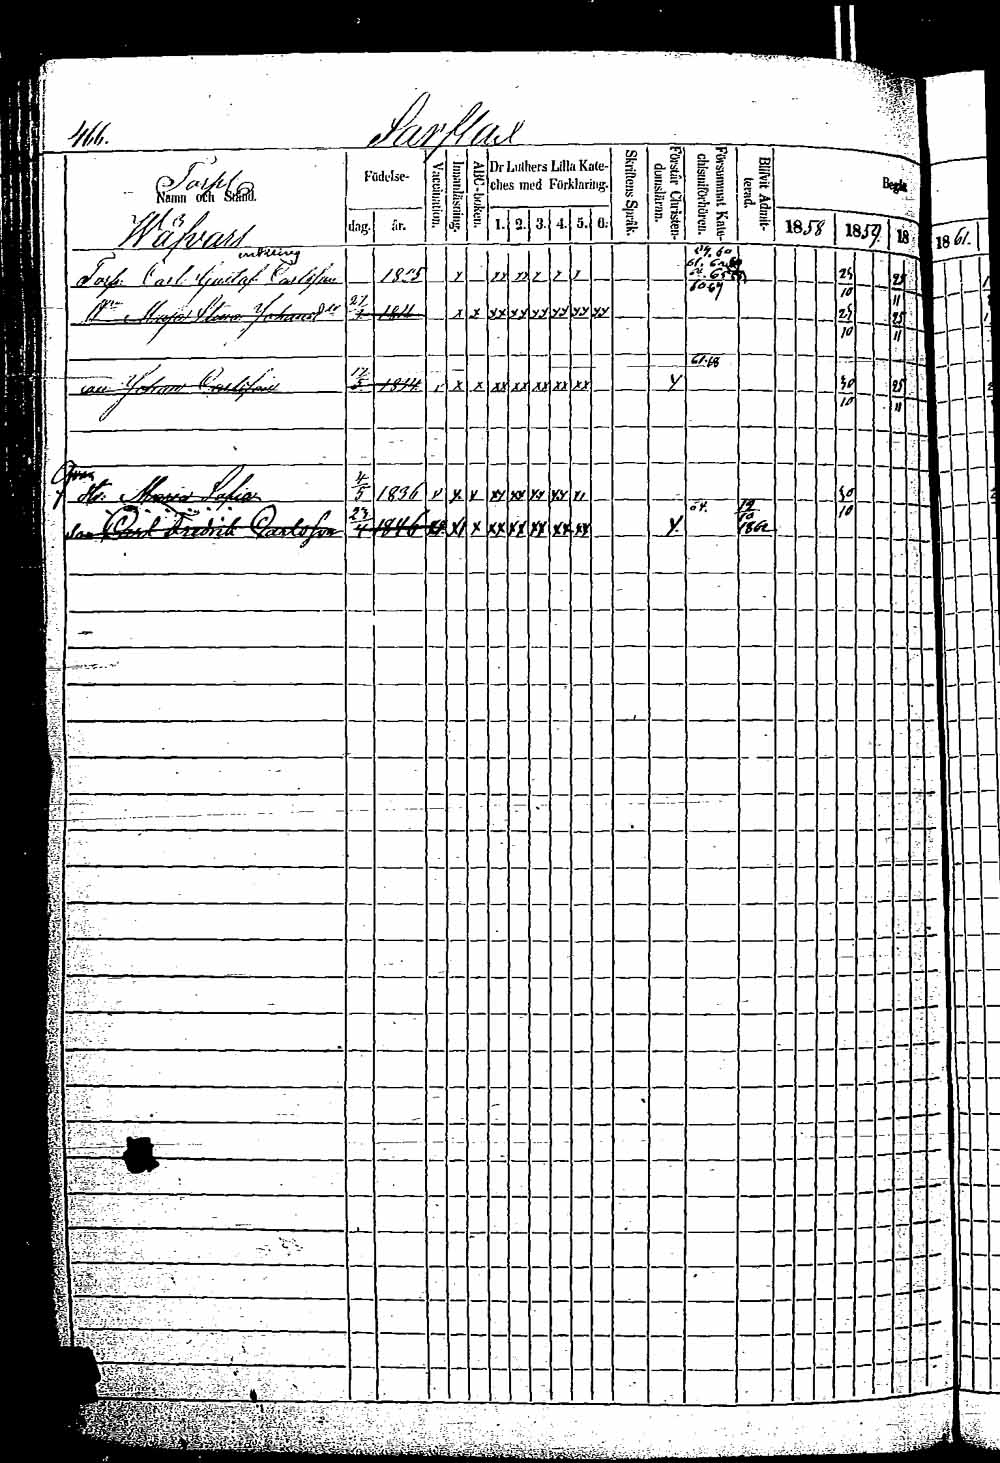 466. Sarflax
Torpl
Namn och Stånd.
Födelse-
dag. år.
Vaccination.
Innanläsning.
ABC-boken.
Dr Luthers Lilla Kate-
ches med Förklaring.
1. 2. 3. 4. 5. 6.
Skriftens Språk.
Förstår Christen-
domsläran.
Försummat Kate-
chismiförhören.
Blifvit Admit-
terad.
Begåt
1858 1859. 18 1861.
Wäfvars
enkling
Torp. Carl Gustaf Carlsson 1805 x xx xx x x x 25/10 25/11
Maja Stina Johansdr 27 1811 x x xx xx xx xx xx xx 25/10 25/11
61.68
son Johan Carlsson 12/5 1844 x x xx xx xx xx xx Y 30/10 25/11
dr. Maria Sofia 4/5 1836 v x v xx xx xx xx x 30/10
Son Carl Fredrik Carlsson 23/4 1846 x xx xx xx xx xx Y. 64. 19/10 1862